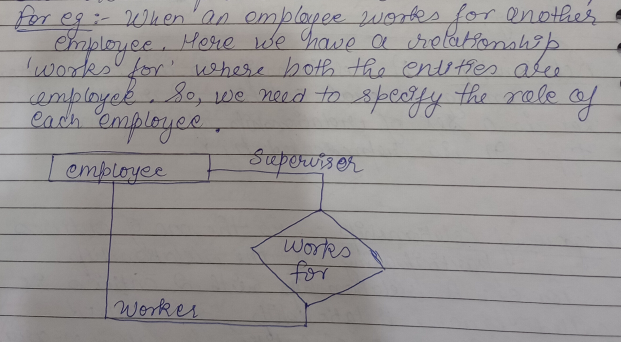 For eg :- When an employee works for another
employee. Here we have a relationship
'works for' where both the entities are
employee. So, we need to specify the role of
each employee.
employee
Supervisor
Works
for
Worker